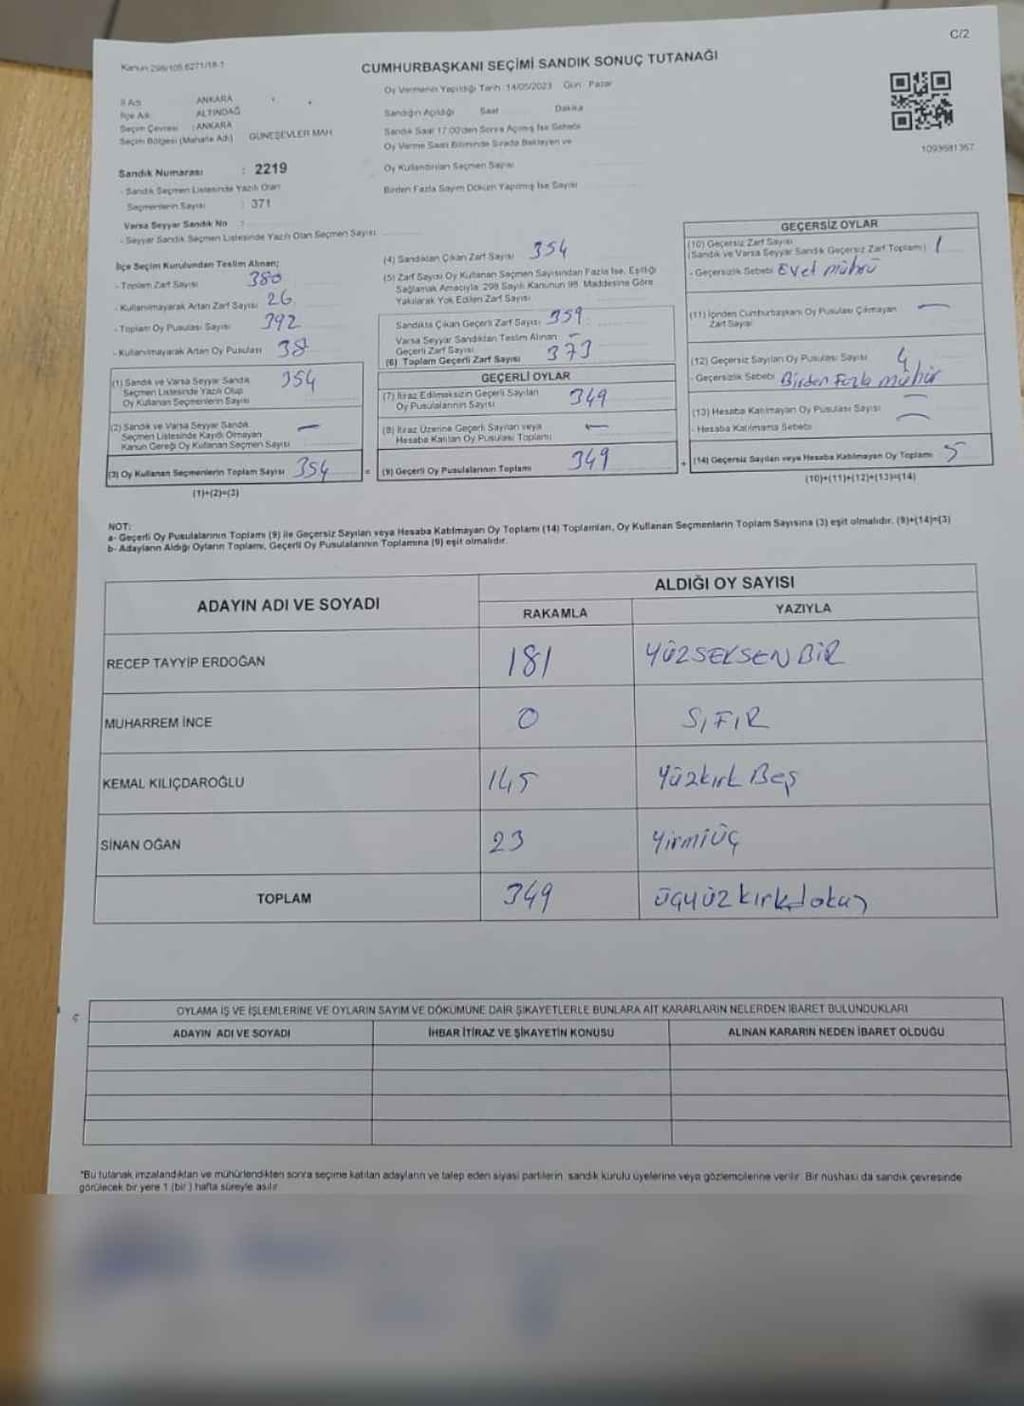 C/2
Kanun 298/105 6271/18-1
CUMHURBAŞKANI SEÇİMİ SANDIK SONUÇ TUTANAĞI
İl Adı : ANKARA
İlçe Adı : ALTINDAĞ
Seçim Çevresi : ANKARA
Seçim Bölgesi (Mahalle Adı) : GÜNEŞEVLER MAH.
Sandık Numarası : 2219
- Sandık Seçmen Listesinde Yazılı Olan
Seçmenlerin Sayısı : 371
Varsa Seyyar Sandık No :
- Seyyar Sandık Seçmen Listesinde Yazılı Olan Seçmen Sayısı
Oy Vermenin Yapıldığı Tarih: 14/05/2023 Gün : Pazar
Sandığın Açıldığı Saat Dakika
Sandık Saat 17:00'den Sonra Açılmış İse Sebebi
Oy Verme Saati Bitiminde Sırada Bekleyen ve
Oy Kullandırılan Seçmen Sayısı
Birden Fazla Sayım Döküm Yapılmış İse Sayısı
1093681367
İlçe Seçim Kurulundan Teslim Alınan;
- Toplam Zarf Sayısı 380
- Kullanılmayarak Artan Zarf Sayısı 26
- Toplam Oy Pusulası Sayısı 392
- Kullanılmayarak Artan Oy Pusulası 38
(1) Sandık ve Varsa Seyyar Sandık 354
Seçmen Listesinde Yazılı Olup
Oy Kullanan Seçmenlerin Sayısı
(2) Sandık ve Varsa Seyyar Sandık
Seçmen Listesinde Kayıtlı Olmayan
Kanun Gereği Oy Kullanan Seçmen Sayısı —
(3) Oy Kullanan Seçmenlerin Toplam Sayısı 354
(1)+(2)=(3)
(4) Sandıktan Çıkan Zarf Sayısı 354
(5) Zarf Sayısı Oy Kullanan Seçmen Sayısından Fazla İse, Eşitliği
Sağlamak Amacıyla, 298 Sayılı Kanunun 98. Maddesine Göre
Yakılarak Yok Edilen Zarf Sayısı
Sandıkta Çıkan Geçerli Zarf Sayısı 359
Varsa Seyyar Sandıktan Teslim Alınan —
Geçerli Zarf Sayısı
(6) Toplam Geçerli Zarf Sayısı 373
GEÇERLİ OYLAR
(7) İtiraz Edilmeksizin Geçerli Sayılan 349
Oy Pusulalarının Sayısı
(8) İtiraz Üzerine Geçerli Sayılan veya —
Hesaba Katılan Oy Pusulası Toplamı
= (9) Geçerli Oy Pusulalarının Toplamı 349
GEÇERSİZ OYLAR
(10) Geçersiz Zarf Sayısı
(Sandık ve Varsa Seyyar Sandık Geçersiz Zarf Toplamı) 1
- Geçersizlik Sebebi Evet mührü
(11) İçinden Cumhurbaşkanı Oy Pusulası Çıkmayan —
Zarf Sayısı
(12) Geçersiz Sayılan Oy Pusulası Sayısı 4
- Geçersizlik Sebebi Birden Fazla mühür
(13) Hesaba Katılmayan Oy Pusulası Sayısı —
- Hesaba Katılmama Sebebi —
+ (14) Geçersiz Sayılan veya Hesaba Katılmayan Oy Toplamı 5
(10)+(11)+(12)+(13)=(14)
NOT:
a- Geçerli Oy Pusulalarının Toplamı (9) ile Geçersiz Sayılan veya Hesaba Katılmayan Oy Toplamı (14) Toplamları, Oy Kullanan Seçmenlerin Toplam Sayısına (3) eşit olmalıdır. (9)+(14)=(3)
b- Adayların Aldığı Oyların Toplamı, Geçerli Oy Pusulalarının Toplamına (9) eşit olmalıdır.
ADAYIN ADI VE SOYADI ALDIĞI OY SAYISI
RAKAMLA YAZIYLA
RECEP TAYYİP ERDOĞAN 181 YÜZSEKSEN BİR
MUHARREM İNCE 0 SIFIR
KEMAL KILIÇDAROĞLU 145 Yüzkırk Beş
SİNAN OĞAN 23 Yirmi Üç
TOPLAM 349 Üçyüz kırkdokuz
OYLAMA İŞ VE İŞLEMLERİNE VE OYLARIN SAYIM VE DÖKÜMÜNE DAİR ŞİKAYETLERLE BUNLARA AİT KARARLARIN NELERDEN İBARET BULUNDUKLARI
ADAYIN ADI VE SOYADI İHBAR İTİRAZ VE ŞİKAYETİN KONUSU ALINAN KARARIN NEDEN İBARET OLDUĞU
*Bu tutanak imzalandıktan ve mühürlendikten sonra seçime katılan adayların ve talep eden siyasi partilerin sandık kurulu üyelerine veya gözlemcilerine verilir. Bir nüshası da sandık çevresinde
görülecek bir yere 1 (bir) hafta süreyle asılır.